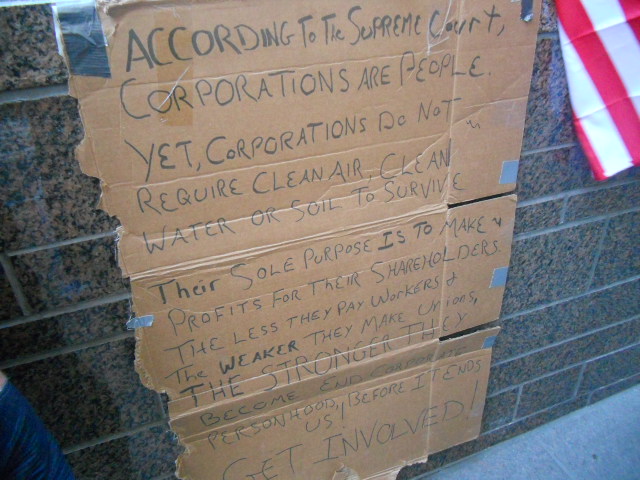 ACCORDING To The SUPREME Court,
CORPORATIONS ARE PEOPLE.
YET, CORPORATIONS DO NOT
REQUIRE CLEAN AIR, CLEAN
WATER OR SOIL To SURVIVE
Their SOLE PURPOSE IS TO MAKE
PROFITS FOR THEIR SHAREHOLDERS
THE LESS THEY PAY WORKERS &
The WEAKER THEY MAKE Unions,
THE STRONGER THEY
BECOME END CORPORATE
PERSONHOOD, BEFORE IT ENDS
US!
GET INVOLVED!